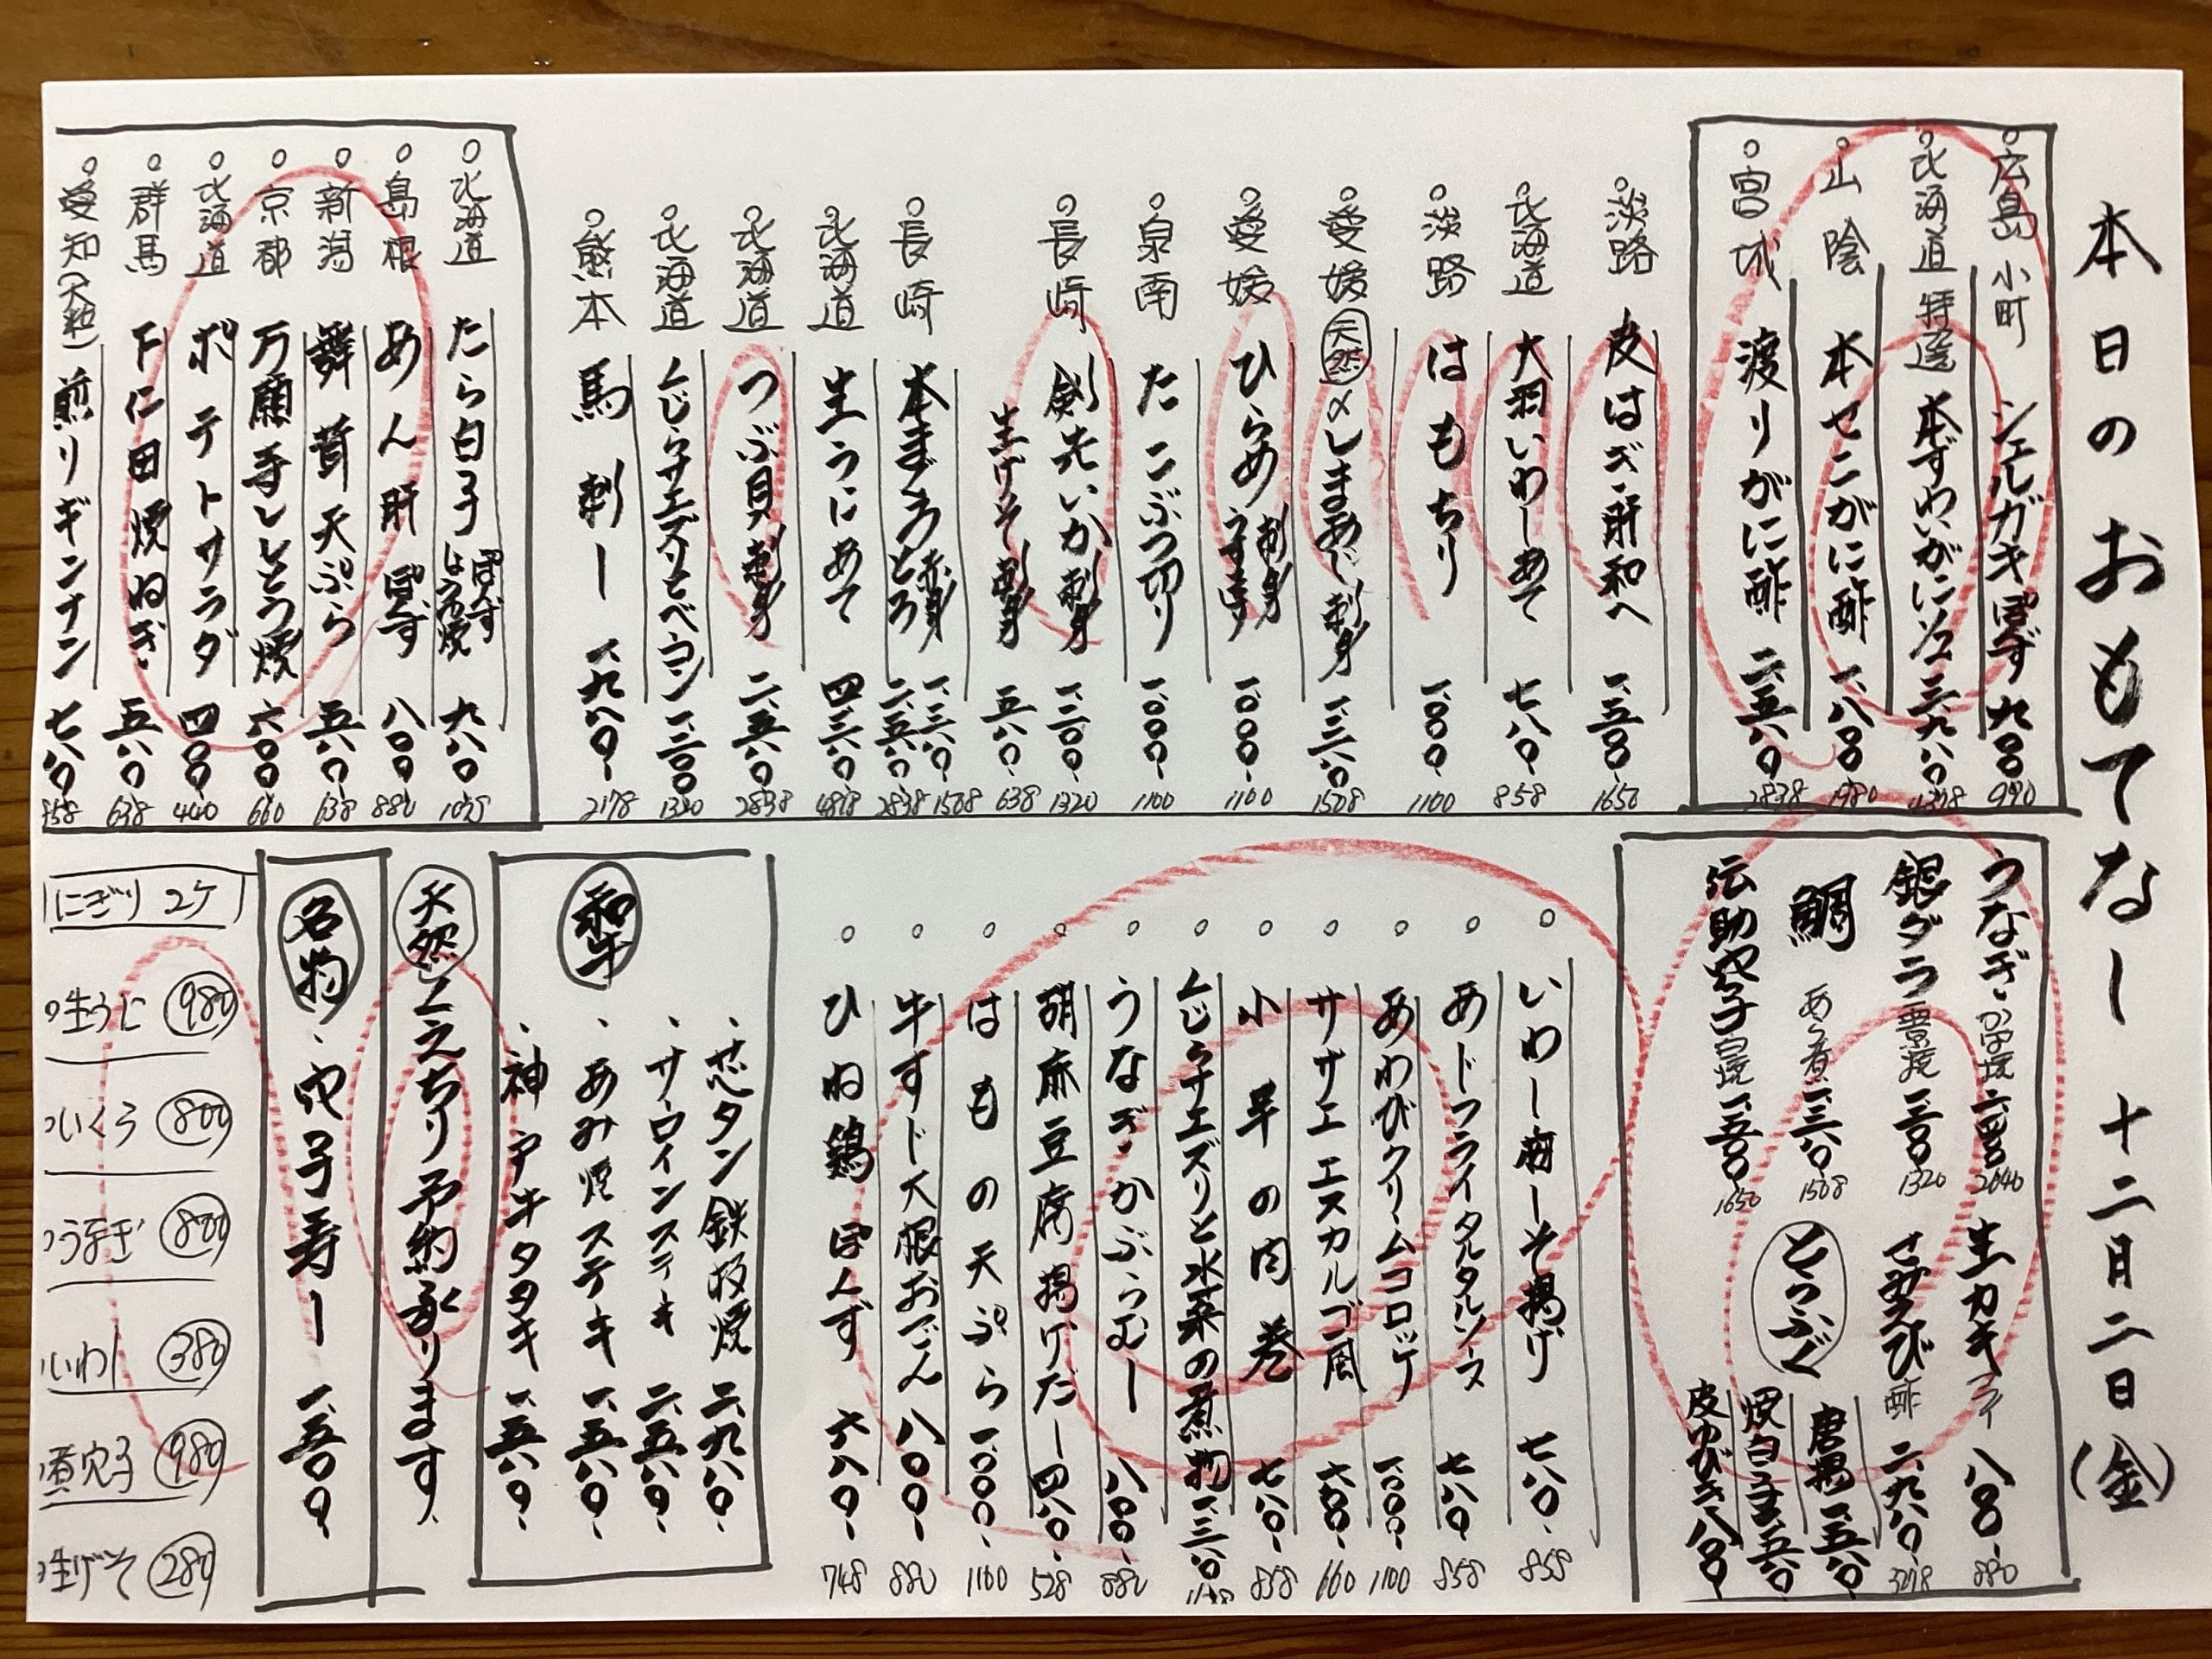 本日のおもてなし 十二月二日(金)
広島 小町 シェルガキ ぽん酢 九〇〇 990
北海道 特選 本ずわいがに 三九八〇
山陰 本セコがに酢 一、八〇〇 1980
宮城 渡りがに酢 二、五八〇 2838
淡路 皮はぎ肝和へ 一、五〇〇 1650
北海道 大羽いわしあて 七八〇 858
淡路 はもちり 一、〇〇〇 1100
愛媛 天然〆しまあじ刺身 一、三八〇 1508
愛媛 ひらめ 刺身 うす造 一、〇〇〇 1100
泉南 たこぶつ切り 一、〇〇〇 1100
長崎 剣先いか刺身 一、二〇〇 1320
生げそ刺身 五八〇 638
長崎 本まぐろ 赤身 一、三八〇 1508
とろ 二、五八〇 2838
北海道 生うにあて 四、三八〇 4818
北海道 つぶ貝刺身 二、五八〇 2838
北海道 くじらサエズリとベーコン 一、二〇〇 1320
熊本 馬刺し 一、九八〇 2178
北海道 たら白子 ぽんず 九八〇
島根 あん肝 ぽんず 八〇〇 880
新潟 舞茸天ぷら 五八〇 638
京都 万願寺ししとう焼 六〇〇 660
北海道 ポテトサラダ 四〇〇 440
群馬 下仁田焼ねぎ 五八〇 638
愛知(大粒) 煎りギンナン 七八〇 858
うなぎ 二、四〇〇 2640
銀ダラ 一、二〇〇 1320
鯛 あら煮 一、三八〇 1508
伝助穴子白焼 一、五〇〇 1650
生カキフライ 八〇〇 880
せみえび酢 二、九八〇 3278
とらふぐ
唐揚 一、五八〇
焼白子
皮ゆびき 八八〇
いわし梅しそ揚げ 七八〇 858
あじフライタルタルソース 七八〇 858
あわびクリームコロッケ 一、〇〇〇 1100
サザエエスカルゴ風 六〇〇 660
小芋の肉巻 七八〇 858
くじらサエズリと水菜の煮物 一、三八〇
うなぎかぶらむし 八〇〇 880
胡麻豆腐揚げだし 四八〇 528
はもの天ぷら 一、〇〇〇 1100
牛すじ大根おでん 八〇〇 880
ひね鶏ぽんず 六八〇 748
和牛
芯タン鉄板焼 二、九八〇
サーロインステーキ 二、五八〇
あみ焼ステーキ 一、五八〇
神戸牛タタキ 一、五八〇
天然くえちり予約承ります
名物 穴子寿し 一、五〇〇
にぎり 2ケ
生うに 980
いくら 800
うなぎ 800
いわし 380
煮穴子 980
生げそ 280